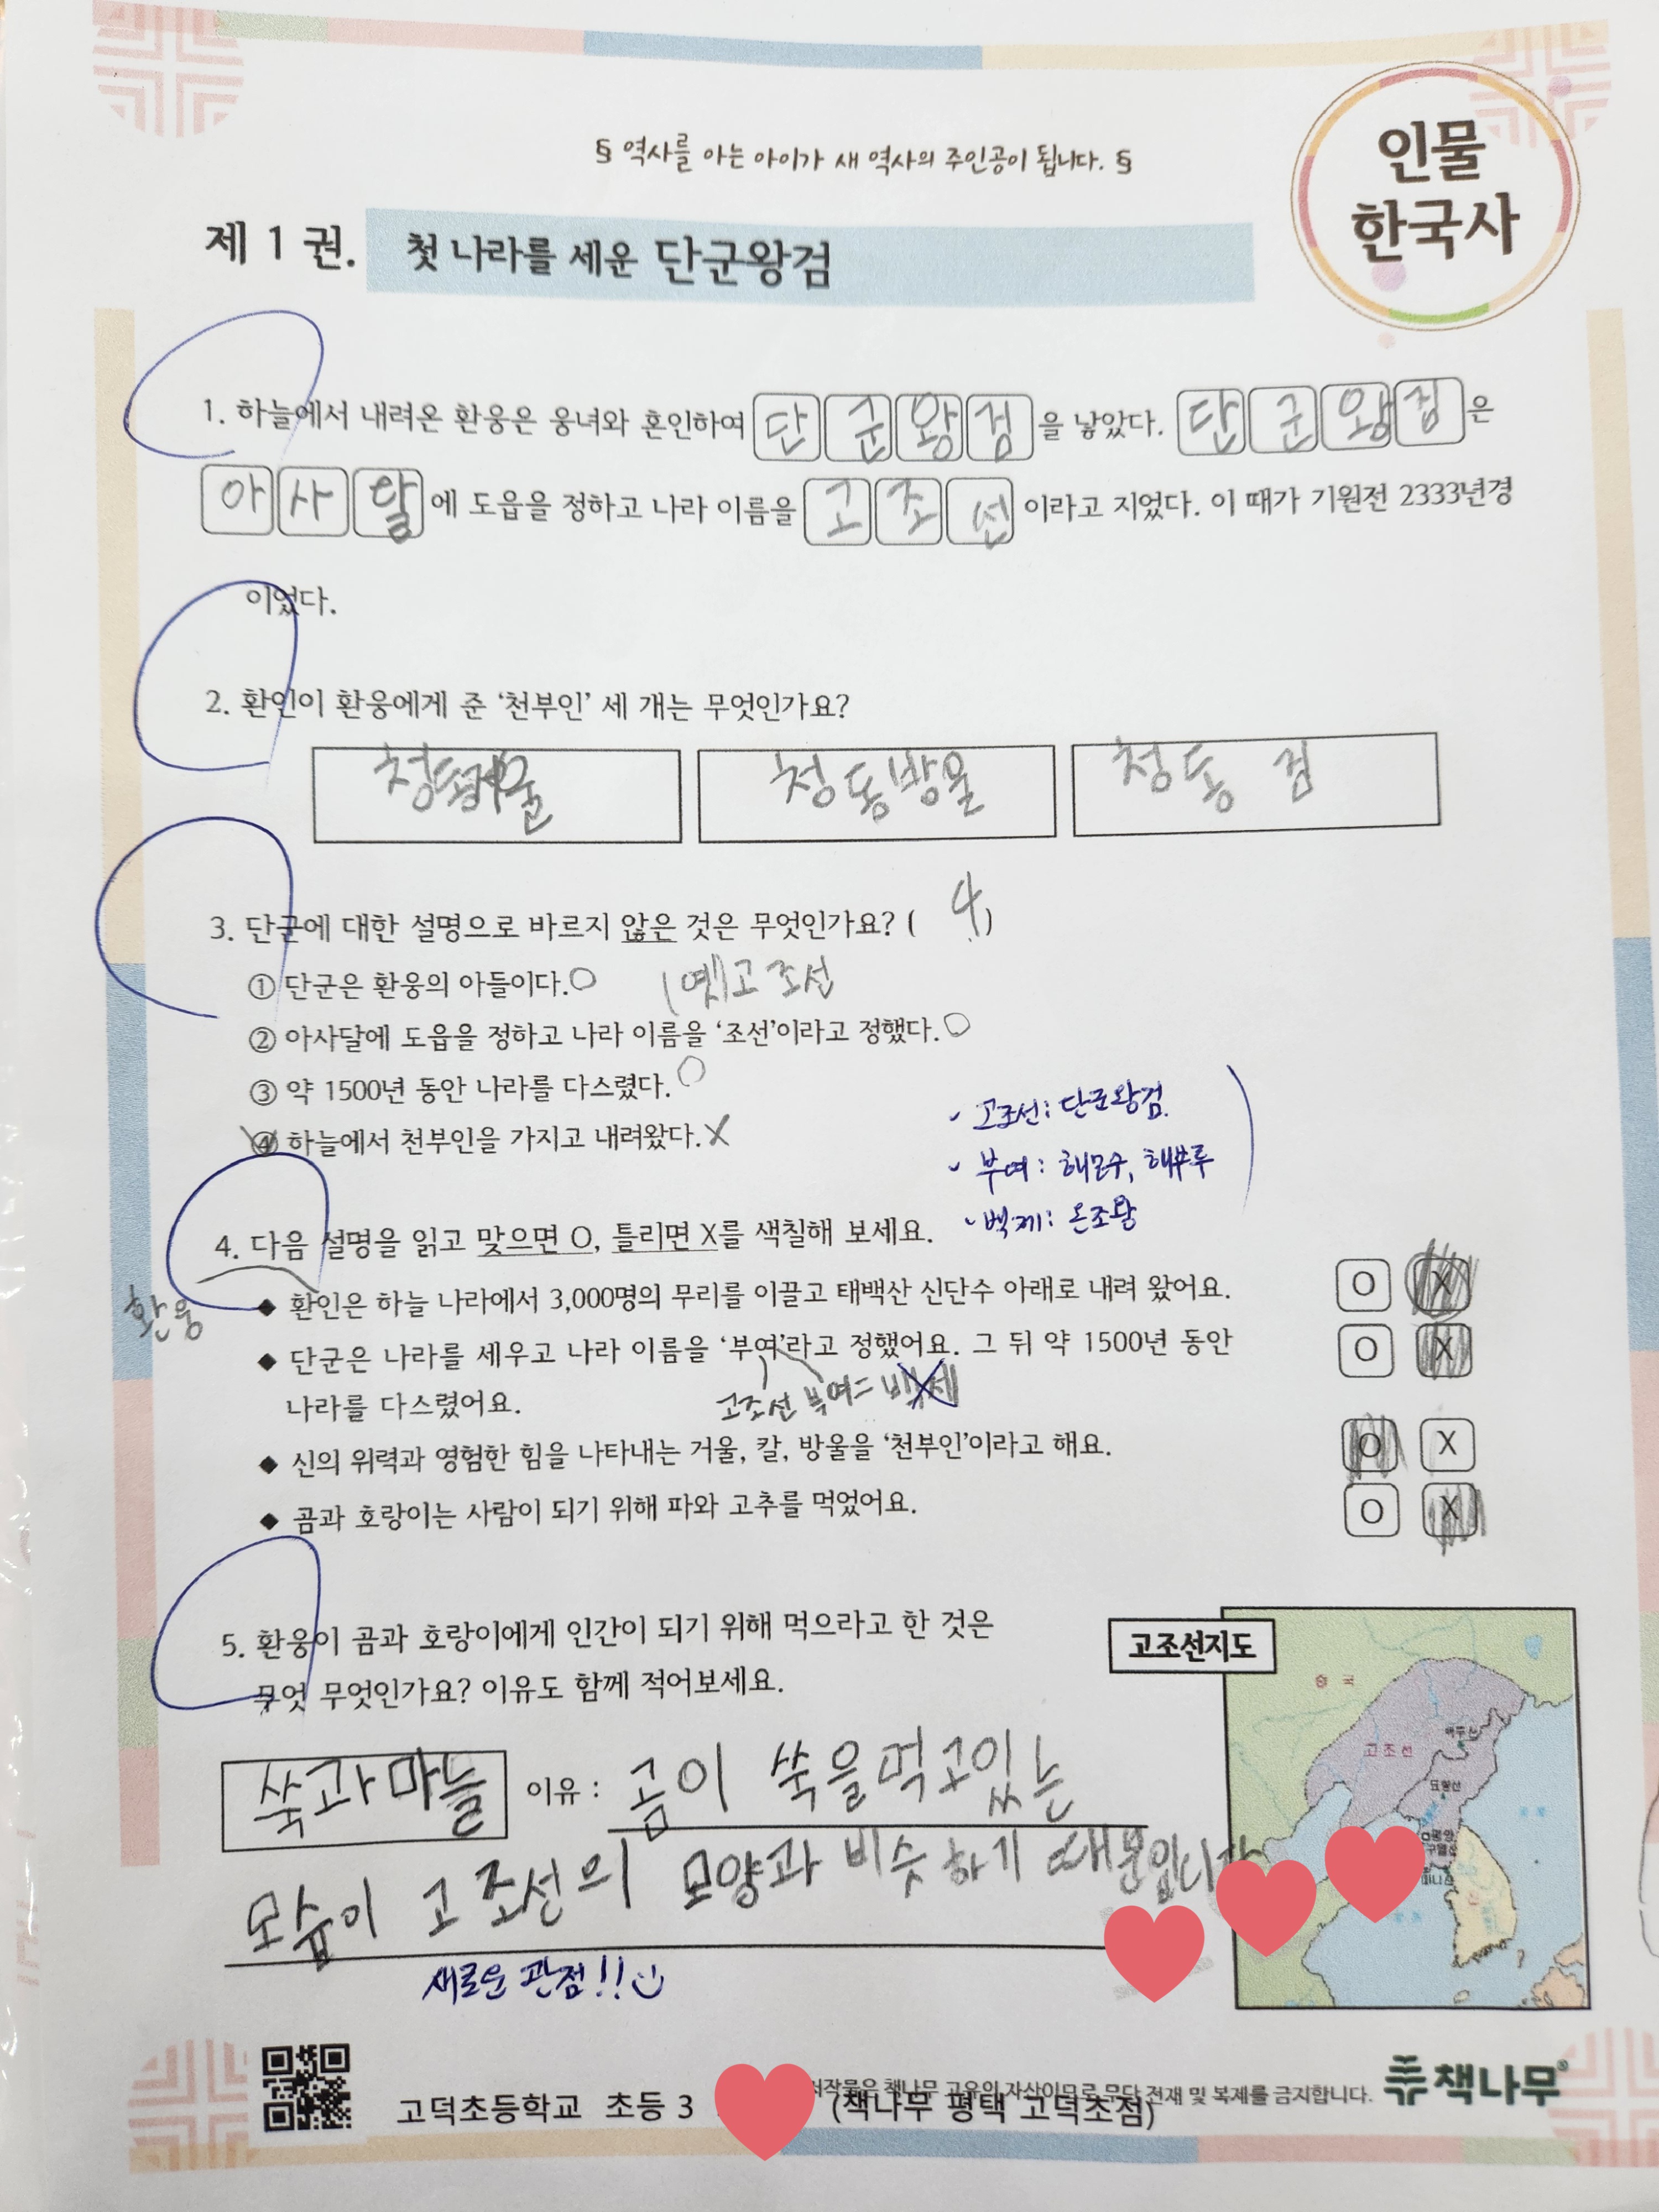 § 역사를 아는 아이가 새 역사의 주인공이 됩니다. §
인물
한국사
제 1 권. 첫 나라를 세운 단군왕검
1. 하늘에서 내려온 환웅은 웅녀와 혼인하여 단군왕검을 낳았다. 단군왕검은
아사달에 도읍을 정하고 나라 이름을 고조선이라고 지었다. 이 때가 기원전 2333년경
이었다.
2. 환인이 환웅에게 준 ‘천부인’ 세 개는 무엇인가요?
청동거울 청동방울 청동 검
3. 단군에 대한 설명으로 바르지 않은 것은 무엇인가요? ( 4 )
① 단군은 환웅의 아들이다. O
(옛)고조선
② 아사달에 도읍을 정하고 나라 이름을 ‘조선’이라고 정했다. O
③ 약 1500년 동안 나라를 다스렸다. O
④ 하늘에서 천부인을 가지고 내려왔다. X
- 고조선: 단군왕검
- 부여: 해모수, 해부루
- 벡제: 온조왕
4. 다음 설명을 읽고 맞으면 O, 틀리면 X를 색칠해 보세요.
환웅
◆ 환인은 하늘 나라에서 3,000명의 무리를 이끌고 태백산 신단수 아래로 내려 왔어요. O X
◆ 단군은 나라를 세우고 나라 이름을 ‘부여’라고 정했어요. 그 뒤 약 1500년 동안 O X
고조선 부여=
나라를 다스렸어요.
◆ 신의 위력과 영험한 힘을 나타내는 거울, 칼, 방울을 ‘천부인’이라고 해요. O X
◆ 곰과 호랑이는 사람이 되기 위해 파와 고추를 먹었어요. O X
5. 환웅이 곰과 호랑이에게 인간이 되기 위해 먹으라고 한 것은
무엇 무엇인가요? 이유도 함께 적어보세요.
쑥과 마늘 이유 : 곰이 쑥을 먹고있는
모습이 고조선의 모양과 비슷하기 때문입니다
새로운 관점!!
고조선지도
중 국
고조선
백두산
묘향산
평양
구월산
고덕초등학교 초등 3 (책나무 평택 고덕초점)
저작물은 책나무 고유의 자산이므로 무단 전재 및 복제를 금지합니다.
책나무